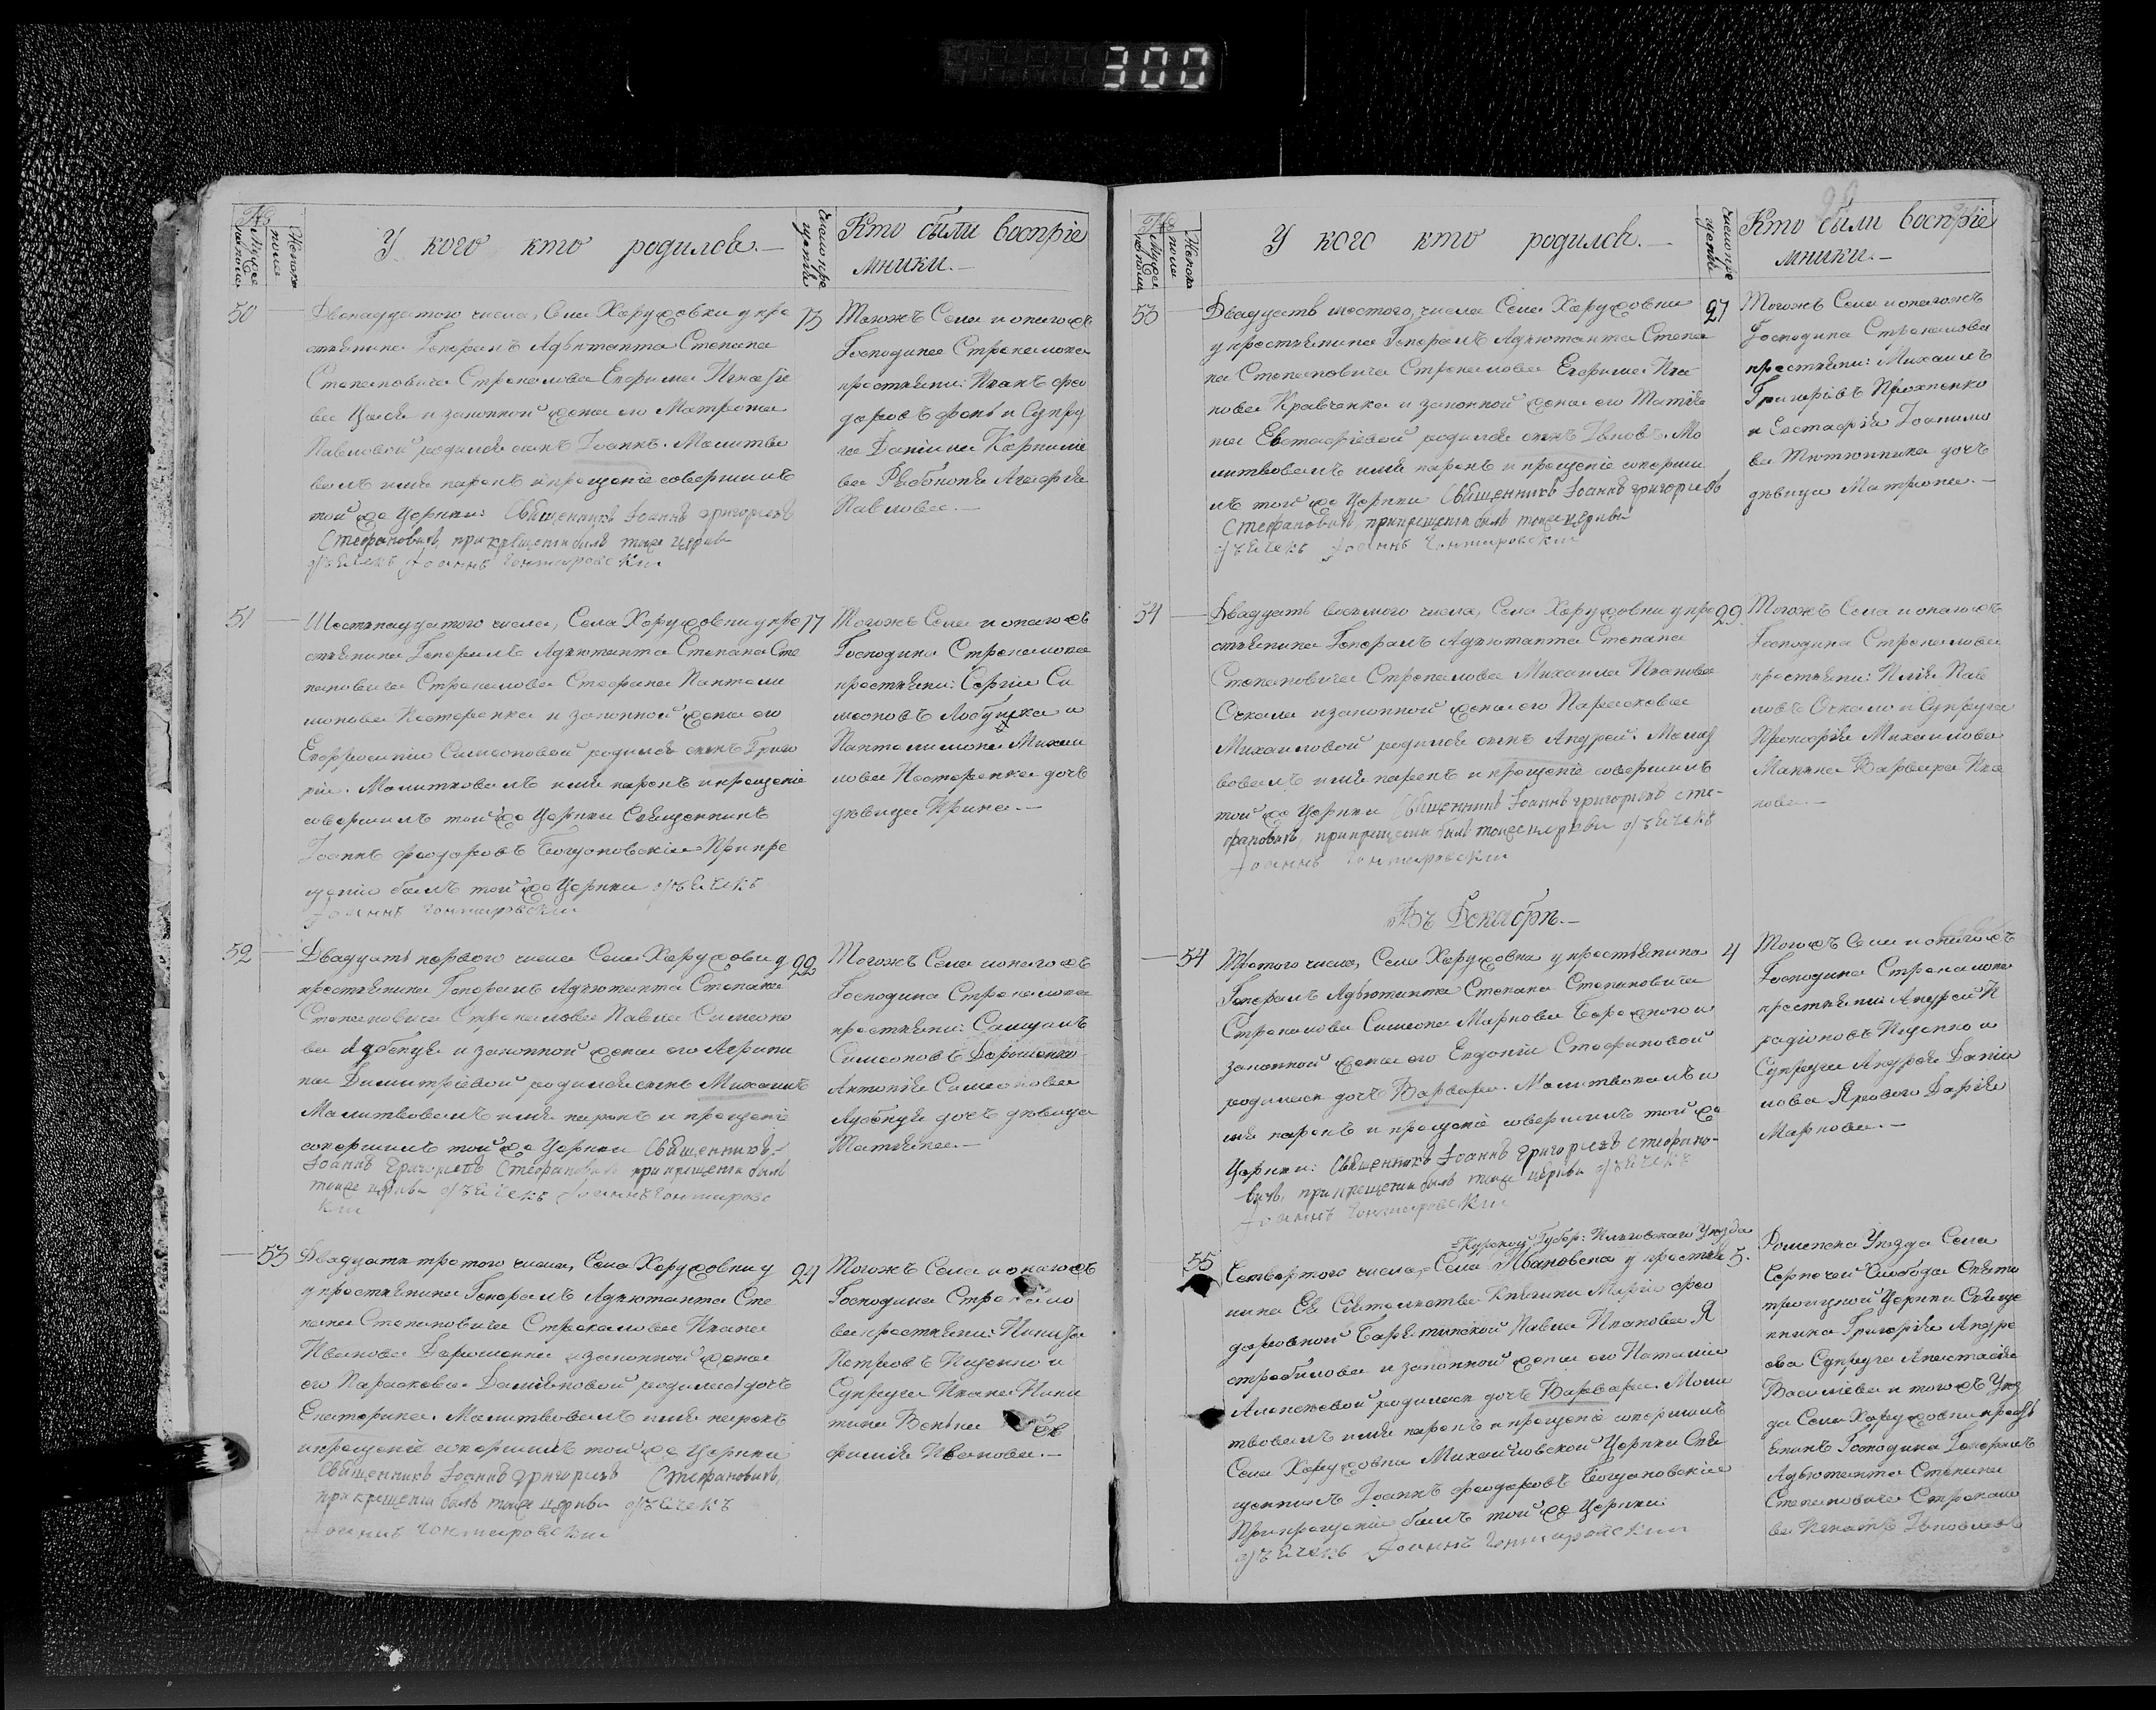 300
№
Мужеска пола
Женска пола
У кого кто родился.—
Число крещенія
Кто были воспріе
мники.—
50
Двенадцатого числа, Села Харуховки у кре
стянина Генералъ Адъютанта Степана
Степановича Стрекалова Ефрима
и законной жены его Матроны
Павловой родился сынъ Іоаннъ. Молитво
валъ имя нарекъ и крещеніе совершилъ
той же Церкви: Священникъ Іоаннъ Григорьевъ
Стефановичъ, при крещеніи былъ тоя же церкви
дьячекъ Іоаннъ Гонтаровскій
13
Тогожъ Села и онагожъ
Господина Стрекалова
крестяни: Иванъ Фео
доровъ и Супруг
га Даніила Корнилie
ва Агафія
Павлова.—
51
Шестьнадцатого числа, Села Харуховки у кре
стянина Генералъ Адъютанта Степана Сте
пановича Стрекалова Стефана Пантели
монова Нестеренка и законной жены его
Евфросиніи Симеоновой родился сынъ Григо
рій. Молитвовалъ имя нарекъ и крещеніе
совершилъ той же Церкви Священникъ
Іоаннъ Феодоровъ Богдановскій При кре
щеніи былъ той же Церкви дьячекъ
Іоаннъ Гонтаровскій
17
Тогожъ Села и онагожъ
Господина Стрекалова
крестяни: Сергій Си
меоновъ и
Пантелимона Михаи
лова Нестеренка дочь
дѣвица Ирина.—
52
Двадцать первого числа Села Харуховки у
крестянина Генералъ Адъютанта Степана
Степановича Стрекалова Павла Симеоно
ва и законной жены его Агрипи
ны Димитріевой родился сынъ Михаилъ
Молитвовалъ имя нарекъ и крещеніе
совершилъ той же Церкви Священникъ
Іоаннъ Григорьевъ Стефановичъ при крещеніи былъ
тоя же церкви дьячекъ Іоаннъ Гонтаровс
кій
22
Тогожъ Села и онагожъ
Господина Стрекалова
крестяни: Самуилъ
Симеоновъ Дорошенко
Антонія Симеонова
дочь дѣвица
Татіяна.—
53
Двадцать третого числа, Села Харуховки у
у крестянина Генералъ Адъютанта Сте
пана Степановича Стрекалова Ивана
Иванова Дорошенка и законной жены
его Параскевы Даміяновой родилась дочь
Екатерина. Молитвовалъ имя нарекъ
и крещеніе совершилъ той же Церкви
Священникъ Іоаннъ Григорьевъ Стефановичъ,
при крещеніи былъ тоя же церкви дьячекъ
Іоаннъ Гонтаровскій
24
Тогожъ Села и онагожъ
Господина Стрекало
ва крестяни: Никита
Петровъ Ищенко и
Супруга Ивана Ники
тина
фимія Иванова.—
№
Мужеска пола
Женска пола
У кого кто родился.—
Число крещенія
Кто были воспріе
мники.—
53
Двадцать шестого, числа Села Харуховки
у крестянина Генералъ Адъютанта Степа
на Степановича Стрекалова Ефрима Ива
нова Кравченка и законной жены его Татія
ны Евстафіевой родился сынъ Іяковъ. Мо
литвовалъ имя нарекъ и крещеніе соверши
лъ той же Церкви Священникъ Іоаннъ Григорьевъ
Стефановичъ, при крещеніи былъ тоя же церкви
дьячекъ Іоаннъ Гонтаровскій
27
Тогожъ Села и онагожъ
Господина Стрекалова
крестяни: Михаилъ
Григоріевъ Прохненко
и Евстафія Іоакимо
ва Тютюнника дочь
дѣвица Матрона.—
54
Двадцать восьмого числа, Села Харуховки у кре
стянина Генералъ Адъютанта Степана
Степановича Стрекалова Михаила Иванова
Очкала и законной жены его Параскевы
Михаиловой родился сынъ Андрей. Молит
вовалъ имя нарекъ и крещеніе совершилъ
той же Церкви Священникъ Іоаннъ Григорьевъ Сте-
фановичъ, при крещеніи былъ тоя же церкви дьячекъ
Іоаннъ Гонтаровскій
29.
Тогожъ Села и онагожъ
Господина Стрекалова
крестяни: Илія Пав
ловъ Очкало и Супруга
Прокофія Михаилова
Варвара Ива
нова.—
Въ Декабрѣ.—
54
Третого числа, Села Харуховки у крестянина
Генералъ Адъютанта Степана Степановича
Стрекалова Симеона Маркова Бережного и
законной жены его Евдокіи Стефановой
родилась дочь Варвара. Молитвовалъ и
мя нарекъ и крещеніе совершилъ той же
Церкви: Священникъ Іоаннъ Григорьевъ Стефано-
вичъ, при крещеніи былъ тоя же церкви дьячекъ
Іоаннъ Гонтаровскій
4
Тогожъ Села и онагожъ
Господина Стрекалова
крестяни Андрей И
радіоновъ Ищенко и
Супруга Андрея Дани
лова Ярового Дарія
Маркова.—
=Курской Губер: Льговскаго Уѣзда
55
Четвертого числа,= Села Ивановска у крестья
нина Ея Сіятельства Княгини Маріи Фео
доровной Барятинской Павла Иванова Я
стребилова и законной жены его Наталіи
родилась дочь Варвара. Моли
твовалъ имя нарекъ и крещеніе совершилъ
Села Харуховки Михаиловской Церкви Свя
щенникъ Іоаннъ Феодоровъ Богдановскій
При крещеніи былъ той же Церкви
дьячекъ Іоаннъ Гонтаровскій
5.
Роменска Уѣзда Села
Слобода Свято
троицкой Церкви Свяще
нника Григорія Андре
ева Супруга Анастасія
Василіева и тогожъ Уѣз
да Села Харуховки крест
янинъ Господина Генералъ
Адъютанта Степана
Степановича Стрекало
ва Игнатъ